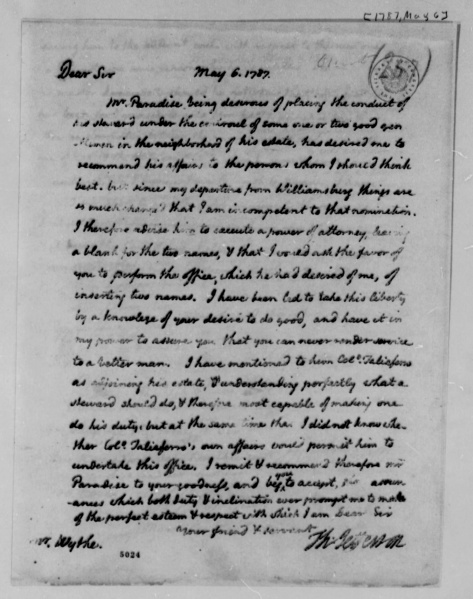 [1787, May 6]
Dear Sir May 6. 1787.
Mr. Paradise being desirous of placing the conduct of
his steward under the controul of some one or two good gen
tlemen in the neighborhood of his estate, has desired me to
recommend his affairs to the persons whom I should think
best. but since my departure from Williamsburg things are
so much changed that I am incompetent to that nomination.
I therefore advise him to execute a power of attorney, leaving
a blank for the two names, & that I would ask the favor of
you to perform the office, which he had desired of me, of
inserting two names. I have been led to take this liberty
by a knowlege of your desire to do good, and have it in
my power to assure you that you can never render service
to a better man. I have mentioned to him Colo. Taliaferro
as adjoining his estate, & understanding perfectly what a
steward should do, & therefore most capable of making one
do his duty: but at the same time that I did not know whe-
ther Colo. Taliaferro's own affairs would permit him to
undertake this office. I remit & recommend therefore mr
Paradise to your goodness, and beg you to accept, the assur
ances which both duty & inclination ever prompt me to make
of the perfect esteem & respect with which I am Dear Sir
your friend & servant
Th: Jefferson
mr. Wythe.
5024